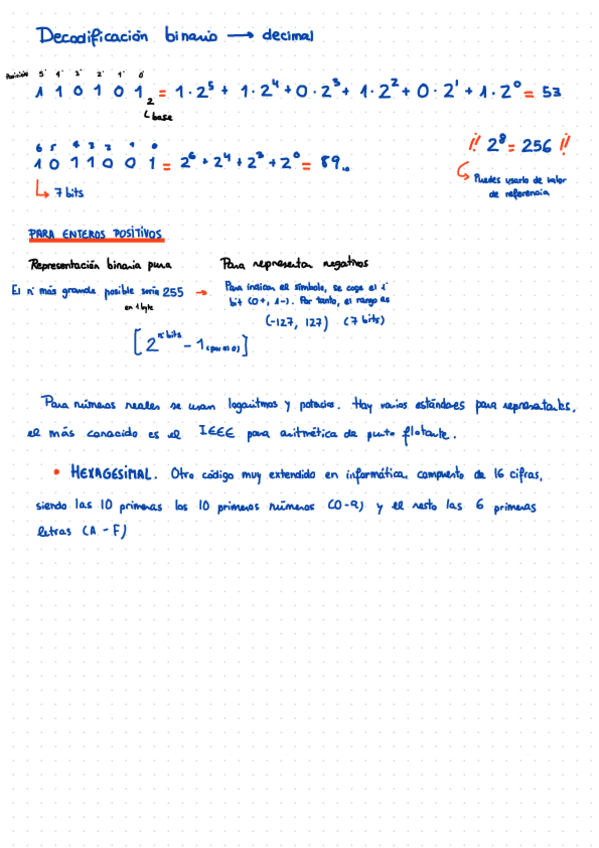 Decodificación binario → decimal
Posición 5º 4º 3º 2º 1º 0º
1 1 0 1 0 1 ₂ = 1·2⁵ + 1·2⁴ + 0·2³ + 1·2² + 0·2¹ + 1·2⁰ = 53
base
6 5 4 3 2 1 0
1 0 1 1 0 0 1 = 2⁶ + 2⁴ + 2³ + 2⁰ = 89₁₀
¡¡ 2⁸ = 256 !!
7 bits
Puedes usarlo de valor
de referencia
PARA ENTEROS POSITIVOS
Representación binaria pura
El nº más grande posible sería 255 →
en 1 byte
[2^nº bits - 1 (por el 0)]
Para representar negativos
Para indicar el símbolo, se coge el 1º
bit (0+, 1-). Por tanto, el rango es
(-127, 127) (7 bits)
Para números reales se usan logaritmos y potencias. Hay varios estándares para representarlos,
el más conocido es el IEEE para aritmética de punto flotante.
• HEXAGESIMAL. Otro código muy extendido en informática, compuesto de 16 cifras,
siendo las 10 primeras los 10 primeros números (0-9) y el resto las 6 primeras
letras (A - F)